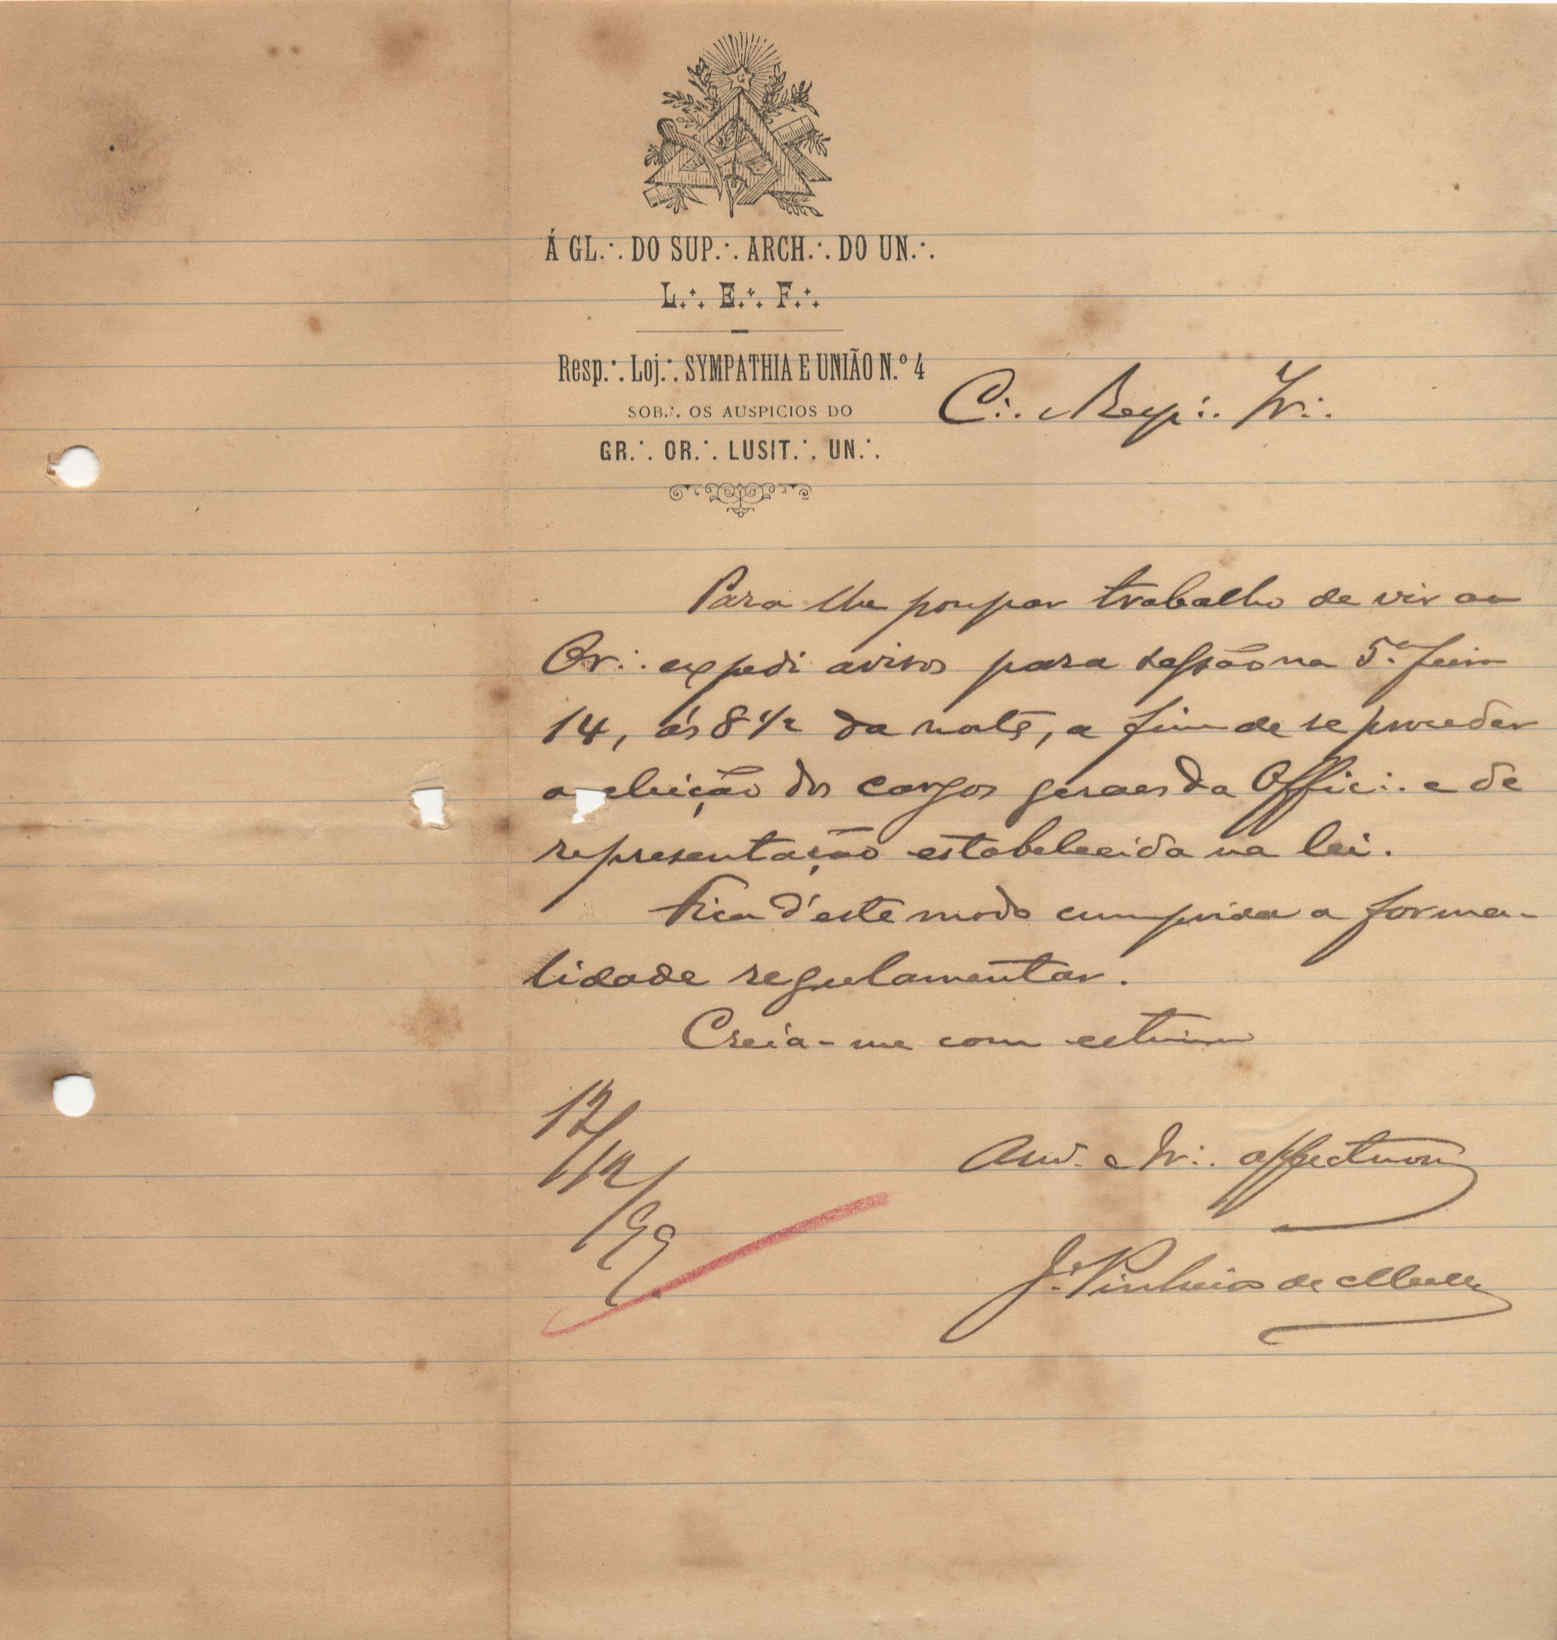 Á GL.·. DO SUP.·. ARCH.·. DO UN.·.
L.·. E.·. F.·.
Resp.·. Loj.·. SYMPATHIA E UNIÃO N.º 4
SOB.·. OS AUSPICIOS DO
GR.·. OR.·. LUSIT.·. UN.·.
C.·. Resp.·. Ir.·.
Para lhe poupar trabalho de vir ao
Or.·. expedi avisos para sessão na 5.ª feira
14, ás 8 1/2 da noite, a fim de se proceder
a eleição dos cargos geraes da Offic.·. e de
representação estabelecida na lei.
Fica d'este modo cumprida a forma-
lidade regulamentar.
Creia-me com estima
12/12/99
Am.º e Ir.·. affectuoso
J. Pinheiro de Mello